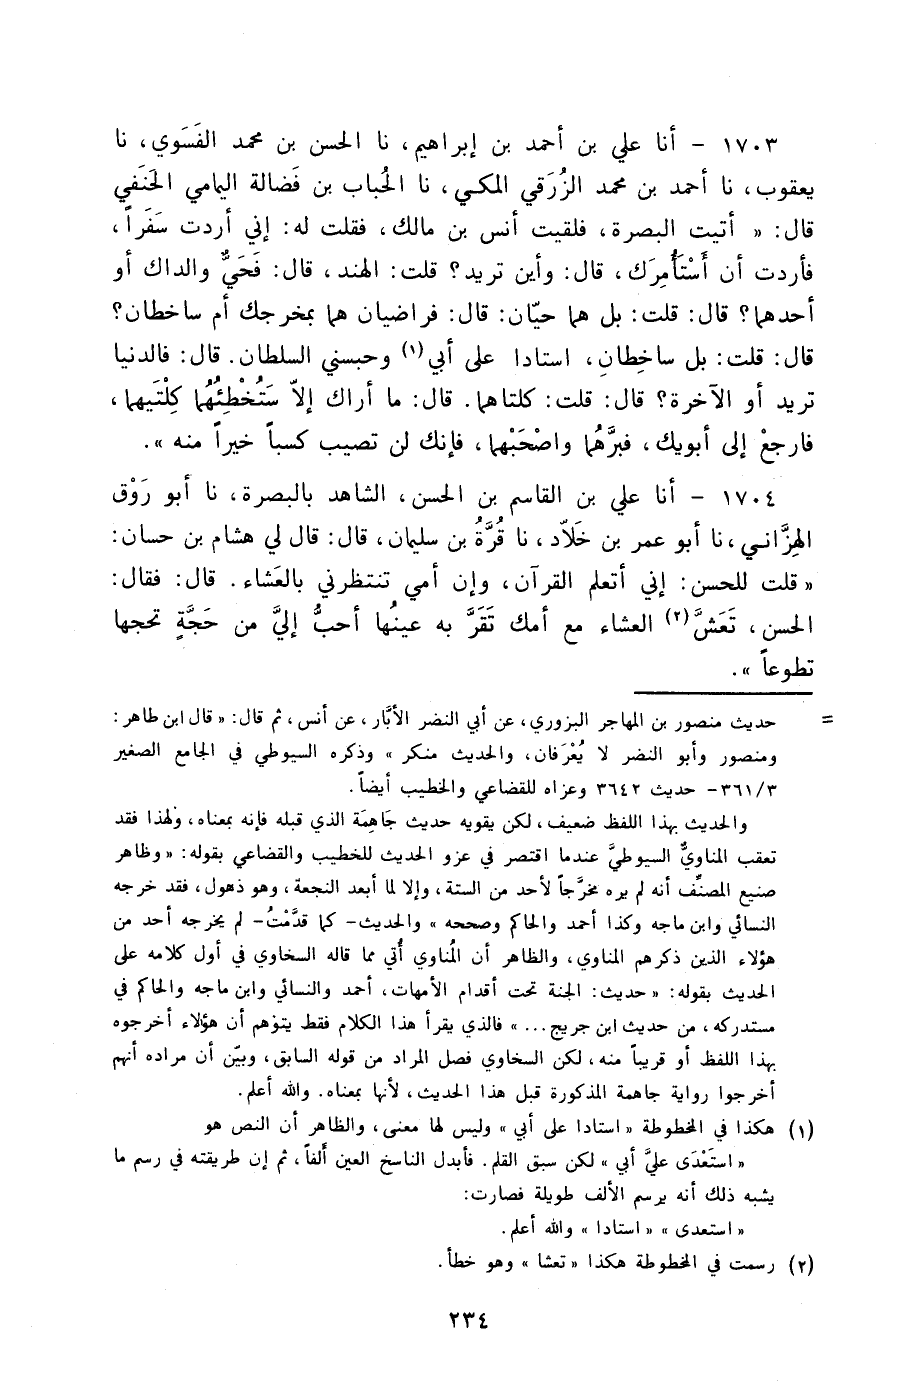 ١٧٠٣ - أنا علي بن أحمد بن إبراهيم، نا الحسن بن محمد الفَسَوي، نا
يعقوب، نا أحمد بن محمد الزُرَقي المكي، نا الحُباب بن فَضالة اليمامي الحَنَفي
قال: « أتيت البصرة، فلقيت أنس بن مالك، فقلت له: إني أردت سَفَراً،
فأردت أن أَسْتَأْمِرَك، قال: وأين تريد؟ قلت: الهند، قال: فَحَيٌّ والداك أو
أحدهما؟ قال: قلت: بل هما حيّان: قال: فراضيان هما بمخرجك أم ساخطان؟
قال: قلت: بل ساخِطانِ، استادا على أبي(١) وحبسني السلطان. قال: فالدنيا
تريد أو الآخرة؟ قال: قلت: كلتاهما. قال: ما أراك إلاّ سَتُخْطِئُهُما كِلْتَيهما،
فارجعْ إلى أبويك، فبرَّهُما واصْحَبْهما، فإنك لن تصيب كسباً خيراً منه ».
١٧٠٤ - أنا علي بن القاسم بن الحسن، الشاهد بالبصرة، نا أبو رَوْق
الهِزَّاني، نا أبو عمر بن خَلاّد، نا قُرَّةُ بن سليمان، قال: قال لي هشام بن حسان:
« قلت للحسن: إني أتعلم القرآن، وإن أمي تنتظرني بالعَشاء. قال: فقال:
الحسن، تَعَشَّ(٢) العشاء مع أمك تَقَرَّ به عينُها أحبُّ إليَّ من حَجَّةٍ تحجها
تطوعاً ».
= حديث منصور بن المهاجر البزوري، عن أبي النضر الأبَّار، عن أنس، ثم قال: « قال ابن طاهر:
ومنصور وأبو النضر لا يُعْرَفان، والحديث منكر » وذكره السيوطي في الجامع الصغير
٣٦١/٣- حديث ٣٦٤٢ وعزاه للقضاعي والخطيب أيضاً.
والحديث بهذا اللفظ ضعيف، لكن يقويه حديث جَاهِمَة الذي قبله فإنه بمعناه، ولهذا فقد
تعقب المناويُّ السيوطيَّ عندما اقتصر في عزو الحديث للخطيب والقضاعي بقوله: « وظاهر
صنيع المصنِّف أنه لم يره مخرَّجاً لأحد من الستة، وإلا لما أبعد النجعة، وهو ذهول، فقد خرجه
النسائي وابن ماجه وكذا أحمد والحاكم وصححه » والحديث- كما قدَّمْتُ- لم يخرجه أحد من
هؤلاء الذين ذكرهم المناوي، والظاهر أن المُناوي أُتي مما قاله السخاوي في أول كلامه على
الحديث بقوله: « حديث: الجنة تحت أقدام الأمهات، أحمد والنسائي وابن ماجه والحاكم في
مستدركه، من حديث ابن جريج... » فالذي يقرأ هذا الكلام فقط يتوَهم أن هؤلاء أخرجوه
بهذا اللفظ أو قريباً منه، لكن السخاوي فصل المراد من قوله السابق، وبيّن أن مراده أنهم
أخرجوا رواية جاهمة المذكورة قبل هذا الحديث، لأنها بمعناه. والله أعلم.
(١) هكذا في المخطوطة « استادا على أبي » وليس لها معنى، والظاهر أن النص هو
« استَعْدَى عليَّ أبي » لكن سبق القلم. فأبدل الناسخ العين ألفاً، ثم إن طريقته في رسم ما
يشبه ذلك أنه يرسم الألف طويلة فصارت:
« استعدى » « استادا » والله أعلم.
(٢) رسمت في المخطوطة هكذا « تعشا » وهو خطأ.
٢٣٤